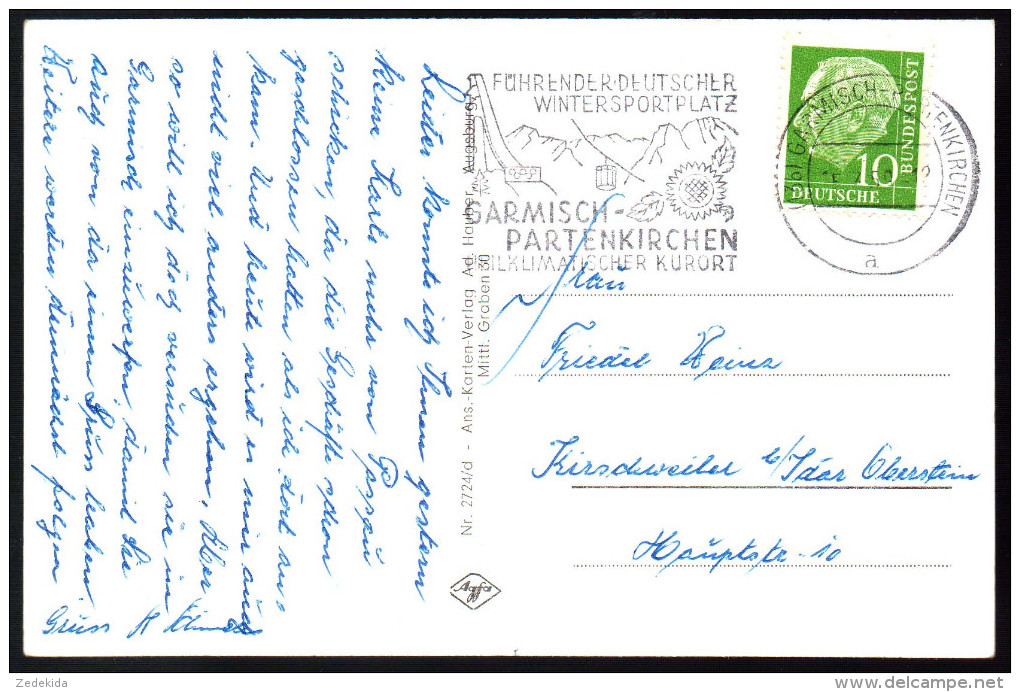 Leider konnte ich Ihnen gestern
keine Karte mehr von Passau
schicken, da die Geschäfte schon
geschlossen hatten als ich dort an=
kam. Und heute wird es mir auch
nicht viel anders ergehen. Aber
so will ich doch versuchen sie in
Garmisch einzuwerfen, damit Sie
auch von da einen Gruss haben
Weitere werden demnächst folgen
Gruss K
Nr. 2724/d - Ans.-Karten-Verlag Ad. Hauber, Augsburg,
Mittl. Graben 30
Agfa
FÜHRENDER DEUTSCHER
WINTERSPORTPLATZ
GARMISCH-
PARTENKIRCHEN
HEILKLIMATISCHER KURORT
GARMISCH-PARTENKIRCHEN
a
10
DEUTSCHE
BUNDESPOST
Frau
Friedel Heinz
Kirschweiler b/Idar Oberstein
Hauptstr. 10
Zedekida
delcampe.net